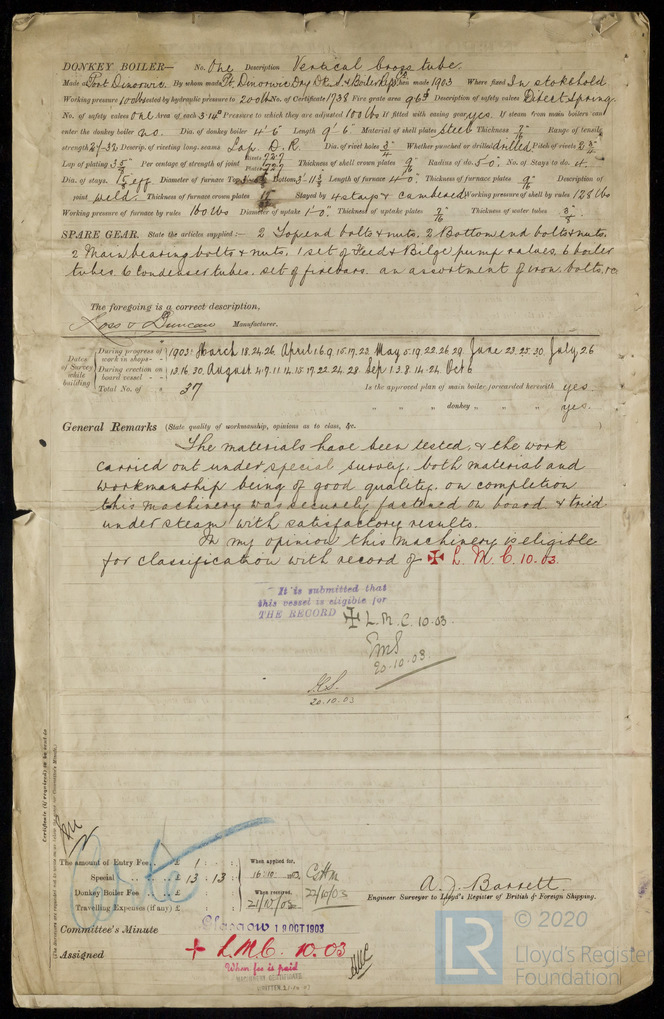 DONKEY BOILER— No. One Description Vertical Cross tube
Made at Port Dinorwic By whom made Pt. Dinorwic Dry Dk. S. & Boiler When made 1903 Where fixed In stokehold
Working pressure 100 lbs tested by hydraulic pressure to 200 lbs No. of Certificate 1738 Fire grate area Description of safety valves Direct Spring
No. of safety valves One Area of each 3.14" Pressure to which they are adjusted 100 lbs If fitted with easing gear yes. If steam from main boilers can
enter the donkey boiler no. Dia. of donkey boiler 4'-6" Length 9'-6" Material of shell plates steel Thickness 7/16" Range of tensile
strength 27-32 Descrip. of riveting long. seams Lap D.R. Dia. of rivet holes 3/4 Whether punched or drilled drilled Pitch of rivets
Lap of plating Per centage of strength of joint Rivets 72.7 Plates 72.7 Thickness of shell crown plates 9/16" Radius of do. 5'-0" No. of Stays to do. 4
Dia. of stays. Diameter of furnace Top Bottom Length of furnace 4'-0" Thickness of furnace plates 9/16" Description of
joint weld. Thickness of furnace crown plates Stayed by 4 stays & cambered Working pressure of shell by rules 128 lbs
Working pressure of furnace by rules 160 lbs Diameter of uptake 1'-0" Thickness of uptake plates 7/16" Thickness of water tubes 3/8"
SPARE GEAR. State the articles supplied:— 2 Top end bolts & nuts. 2 Bottom end bolts & nuts.
2 Main bearing bolts & nuts, 1 set of Feed & Bilge pump valves. 6 boiler
tubes. 6 Condenser tubes. set of firebars. an assortment of iron, bolts, &c
The foregoing is a correct description,
Ross & Duncan Manufacturer.
Dates of Survey while building
During progress of work in shops - - 1903: March 18.24.26. April 1.6.9.15.17.23. May 5.19.22.26.29. June 23.25.30. July 26
During erection on board vessel - - 13.16.30. August 4.7.11.14.15.17.22.24.28. Sep 1.3.8.14.24. Oct 6
Total No. of 37 Is the approved plan of main boiler forwarded herewith yes.
" " " donkey " " " yes.
General Remarks (State quality of workmanship, opinions as to class, &c.
The materials have been tested, & the work
carried out under special survey, both material and
workmanship being of good quality. on completion
this machinery was securely fastened on board & tried
under steam with satisfactory results.
In my opinion this machinery is eligible
for classification with record of ✠ L.M.C. 10.03.
It is submitted that
this vessel is eligible for
THE RECORD ✠ L.M.C. 10.03.
20.10.03.
20.10.03
The amount of Entry Fee. . £ 1 : : When applied for,
Special . . . . £ 13 : 13 : 16.10. 03
Donkey Boiler Fee . . . £ : : When received,
Travelling Expenses (if any) £ : : 21/10/03 22/10/03
A. J. Barrett.
Engineer Surveyor to Lloyd's Register of British & Foreign Shipping.
Committee's Minute Glasgow 19 OCT 1903
Assigned + L.M.C. 10.03
When fee is paid
MACHINERY CERTIFICATE
WRITTEN
© 2020
LR
Lloyd's Register
Foundation